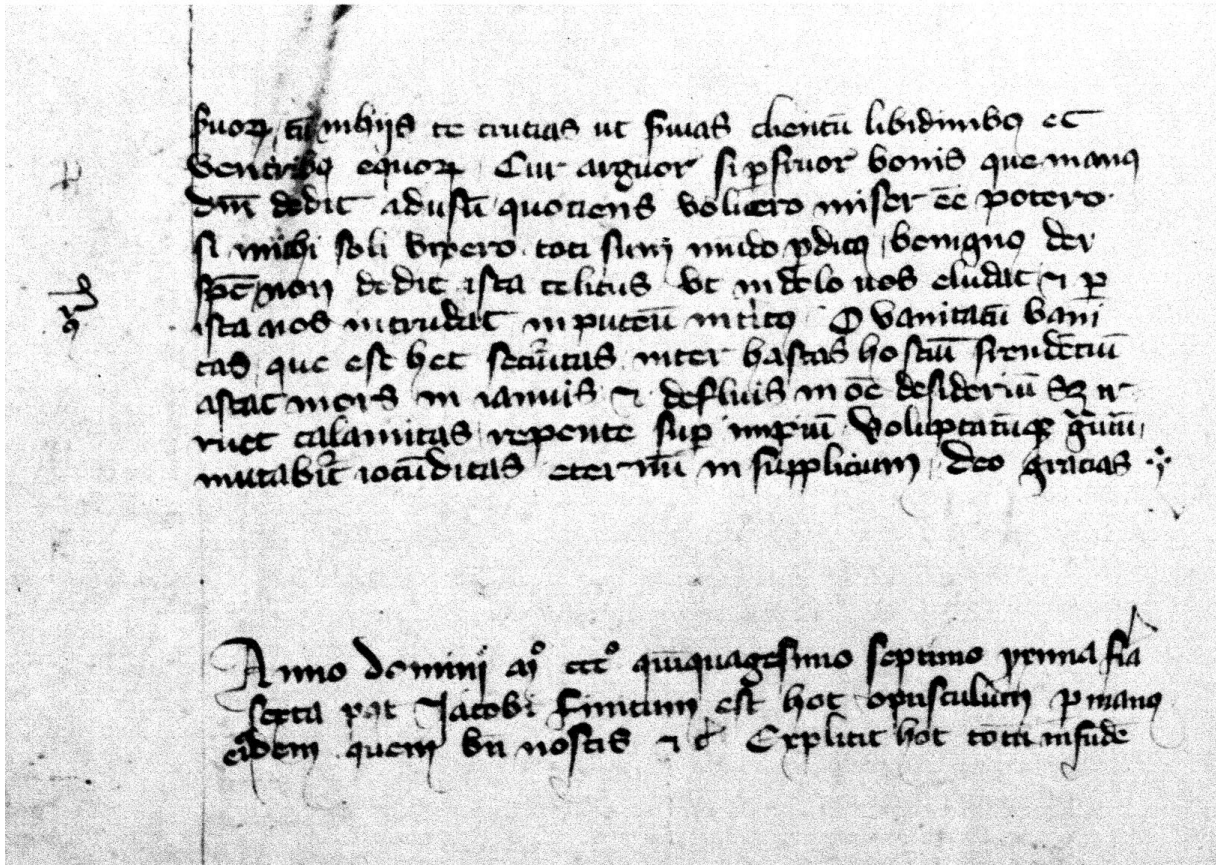 suorum cum in hijs te crucias ut seruias clientum libidinibus et
ventribus equorum Cur arguor si perfruor bonis que manus
domini dedit ad usum quociens voluero miser esse potero
si michi soli vixero toti sum mundo perditus benignus dei
spiritus non dedit ista celitus ut in dolo nos eludat et per
ista nos intrudat in puteum interitus O vanitatum vani
tas que est hec securitas inter hastas hostium frendencium
astat mors in ianuis et defluis in omne desiderium sed ir
ruet calamitas repente super impium voluptatumque
mutabitur iocunditas eternum in supplicium deo gracias
Anno domini mo ccco quinquagesimo septimo proxima feria
sexta Jacobi finitum est hoc opusculum per manus
eiusdem quem bene nostis et c Explicit hoc totum infunde